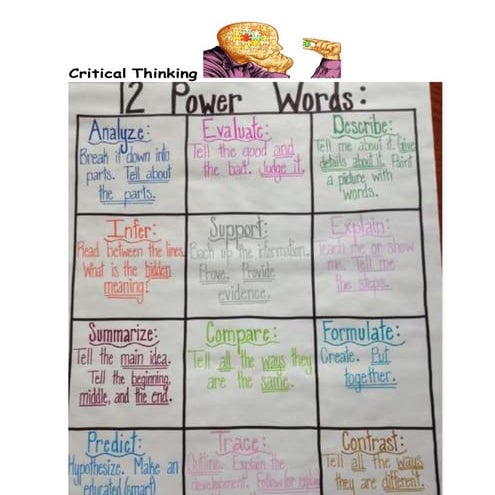 Critical Thinking
12 Power Words:
Analyze:
Break it down into
parts. Tell about
the parts.
Evaluate:
Tell the good and
the bad. Judge it.
Describe:
Tell me about it. Give
details about it. Paint
a picture with
words.
Infer:
Read between the lines.
What is the hidden
meaning?
Support:
Back up the information.
Prove. Provide
evidence.
Explain:
Teach me or show
me. Tell me
the steps.
Summarize:
Tell the main idea.
Tell the beginning,
middle, and the end.
Compare:
Tell all the ways they
are the same.
Formulate:
Create. Put
together.
Predict:
Hypothesize. Make an
educated (smart)
Trace:
Outline. Explain the
development. Follow
Contrast:
Tell all the ways
they are different.